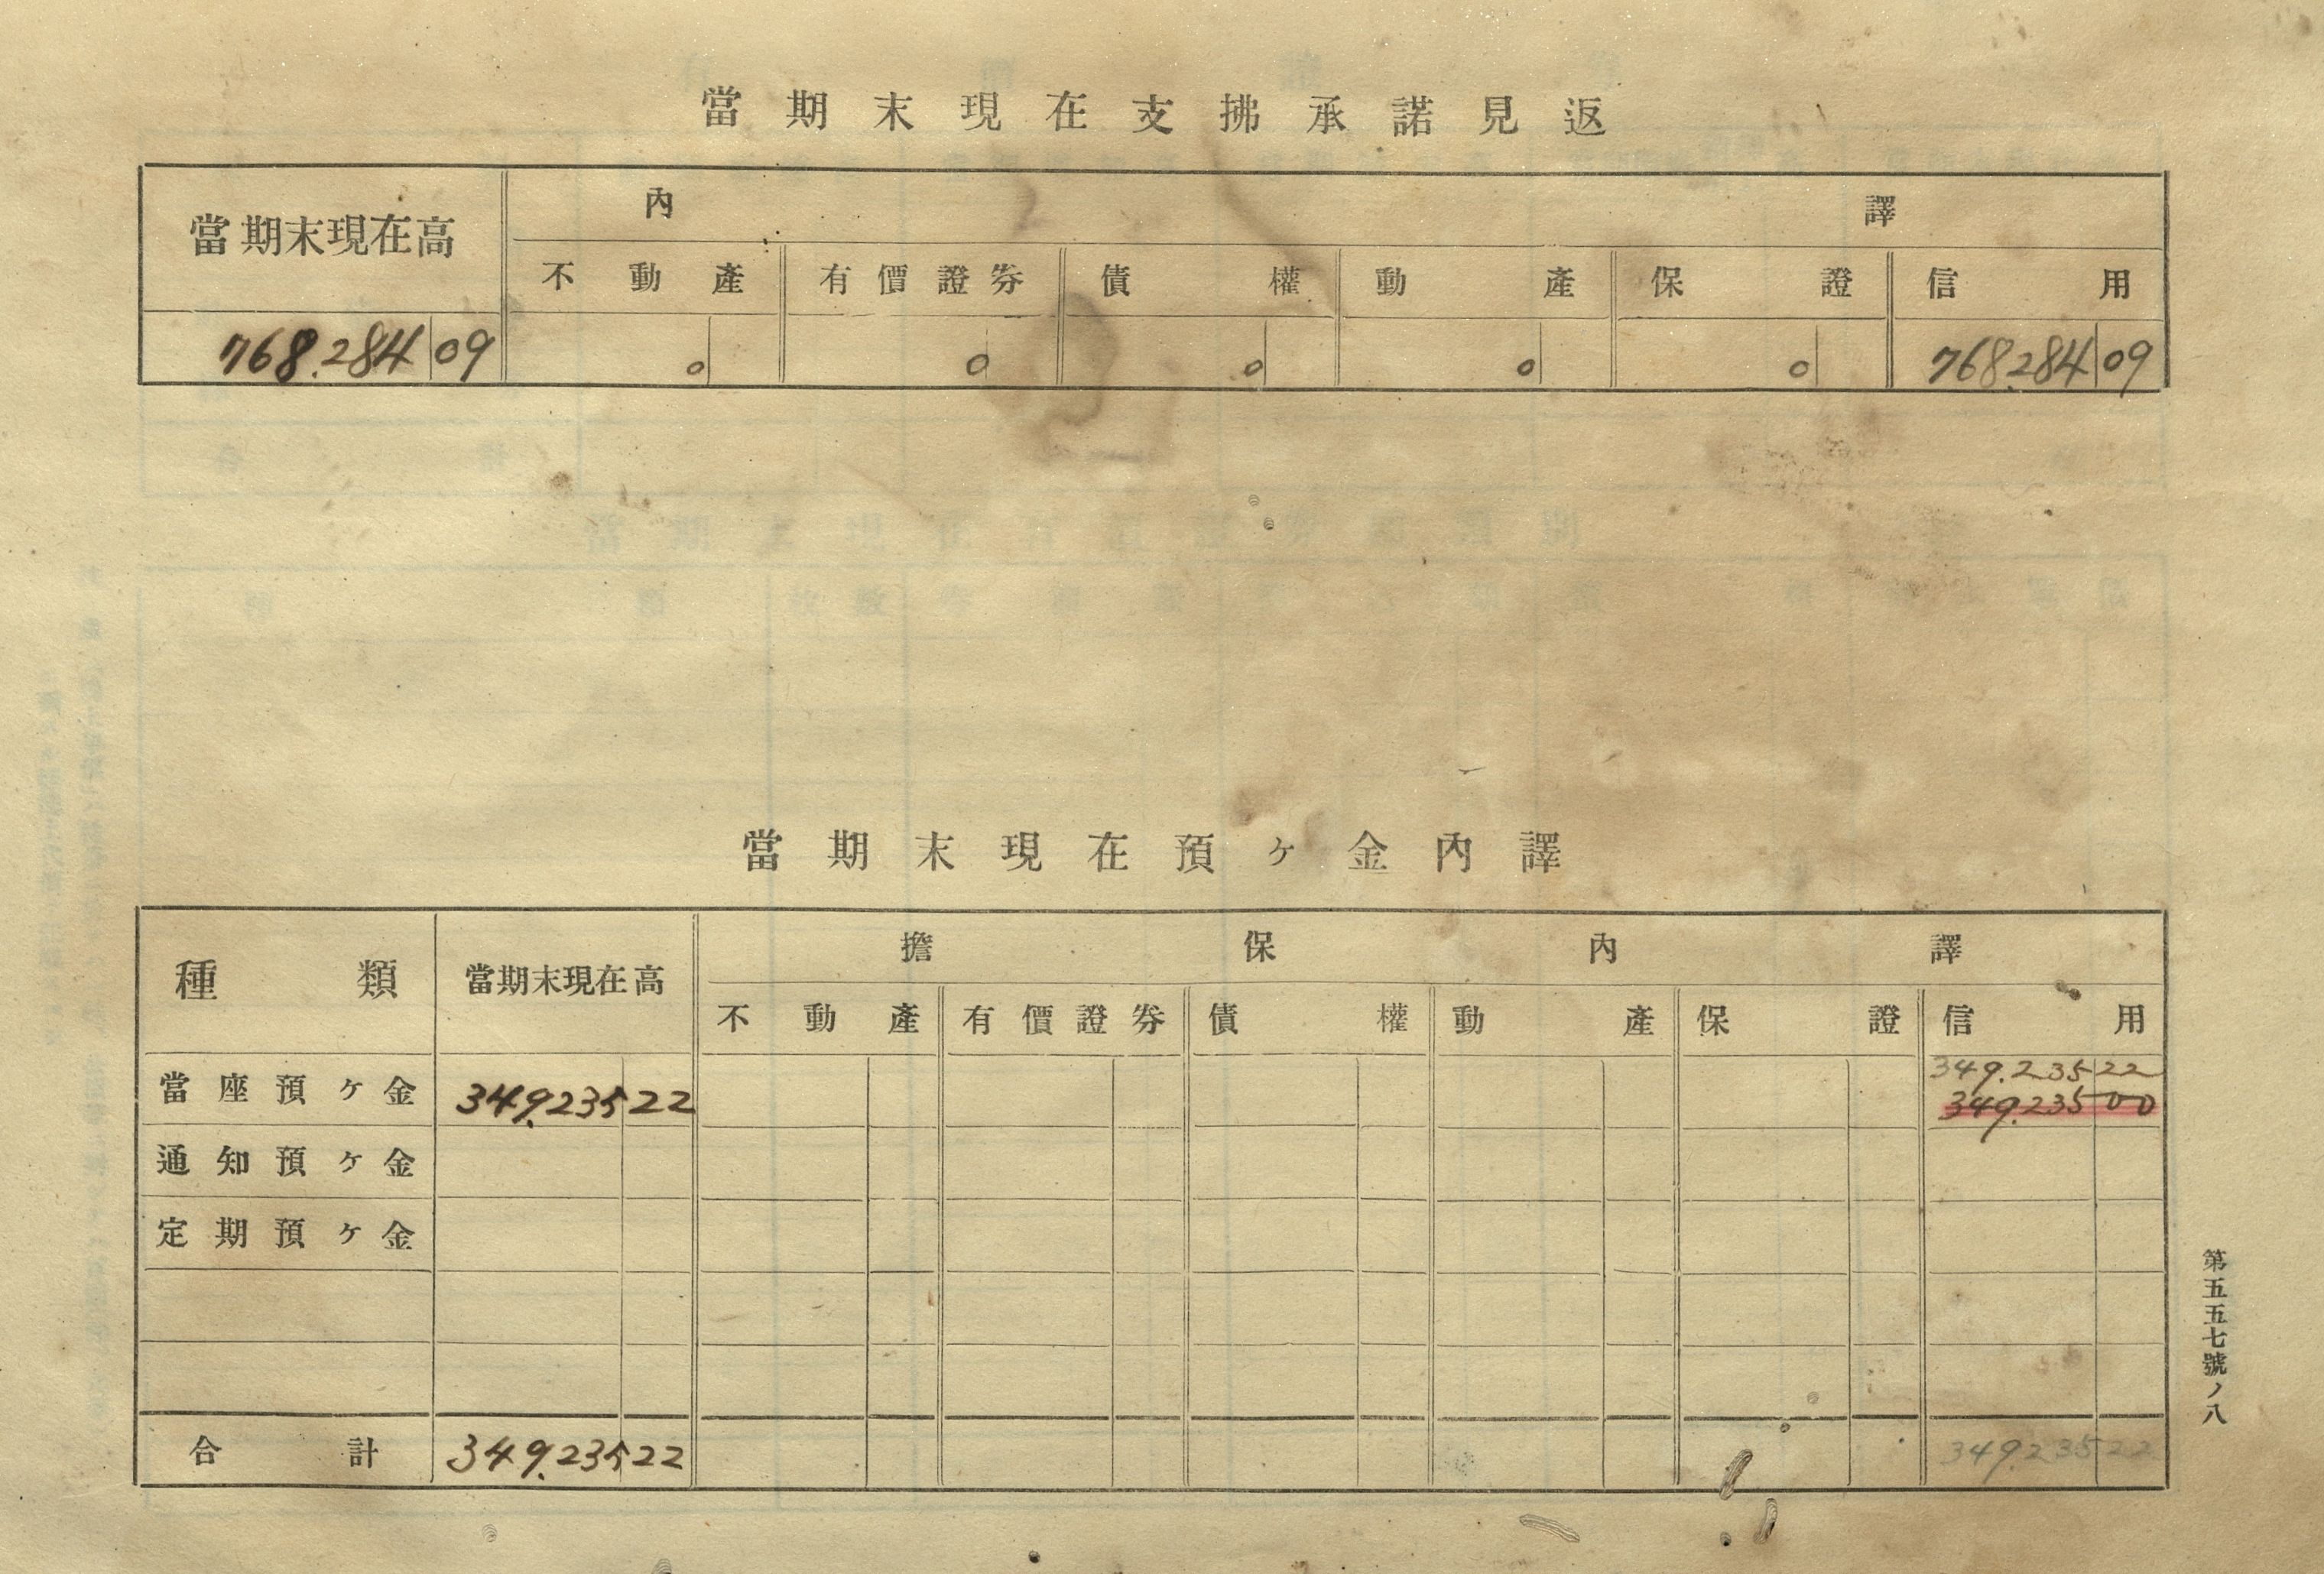 當期末現在支拂承諾見返
當期末現在高 內譯
不動產 有價證券 債權 動產 保證 信用
768.284 09 0 0 0 0 0 768.284 09
當期末現在預ヶ金內譯
種類 當期末現在高 擔保內譯
不動產 有價證券 債權 動產 保證 信用
349.235 22
當座預ヶ金 349.235 22 349.235 00
通知預ヶ金
定期預ヶ金
合計 349.235 22 349.235 22
第五五七號ノ八